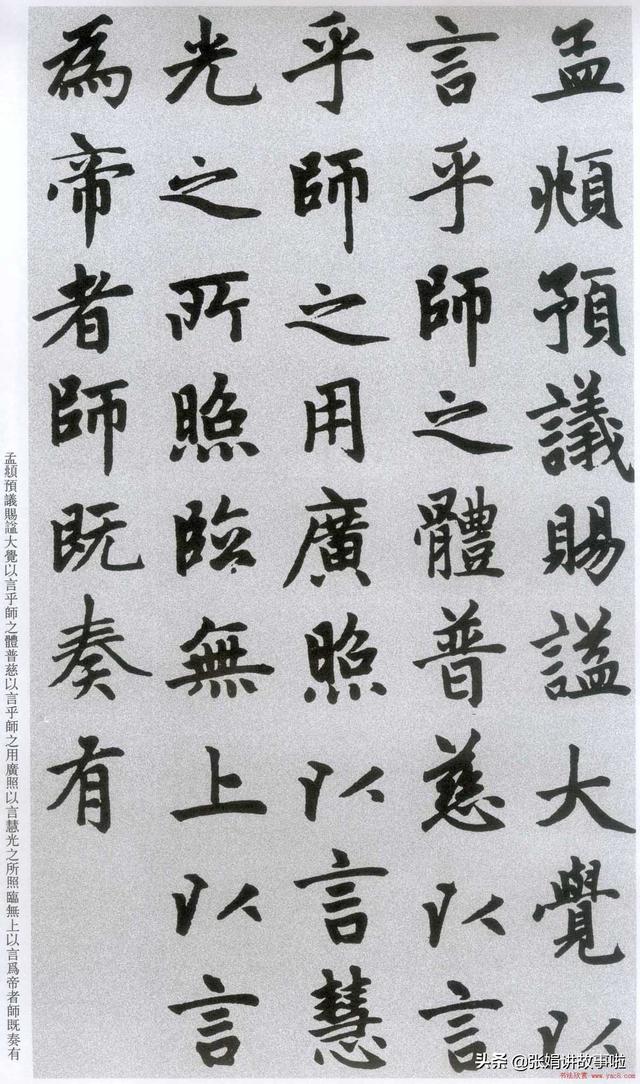 孟頫預議賜謚大覺以
言乎師之體普慈以言
乎師之用廣照以言慧
光之所照臨無上以言
為帝者師既奏有
孟頫預議賜謚大覺以言乎師之體普慈以言乎師之用廣照以言慧光之所照臨無上以言爲帝者師既奏有
头条 @张娟讲故事啦
书法欣赏 www.yac8.com